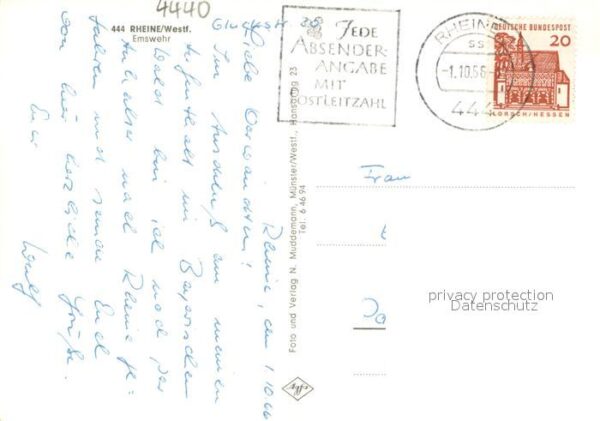 4440
444 RHEINE/Westf.
Emswehr
Rheine, den 1.10.66
Liebe Verwandten!
Im Anschluß an meinen
Aufenthalt im Bayerischen
Wald bin ich noch per
Anhalter nach Rheine ge-
fahren und sende Euch
von hier herzliche Grüße.
Euer
Foto und Verlag N. Muddemann, Münster/Westf., Hansaring 23
Tel. 6 46 94
JEDE
ABSENDER-
ANGABE
MIT
POSTLEITZAHL
RHEINE
ss
-1.10.66
444
DEUTSCHE BUNDESPOST
20
LORSCH/HESSEN
Frau
Do
privacy protection
Datenschutz